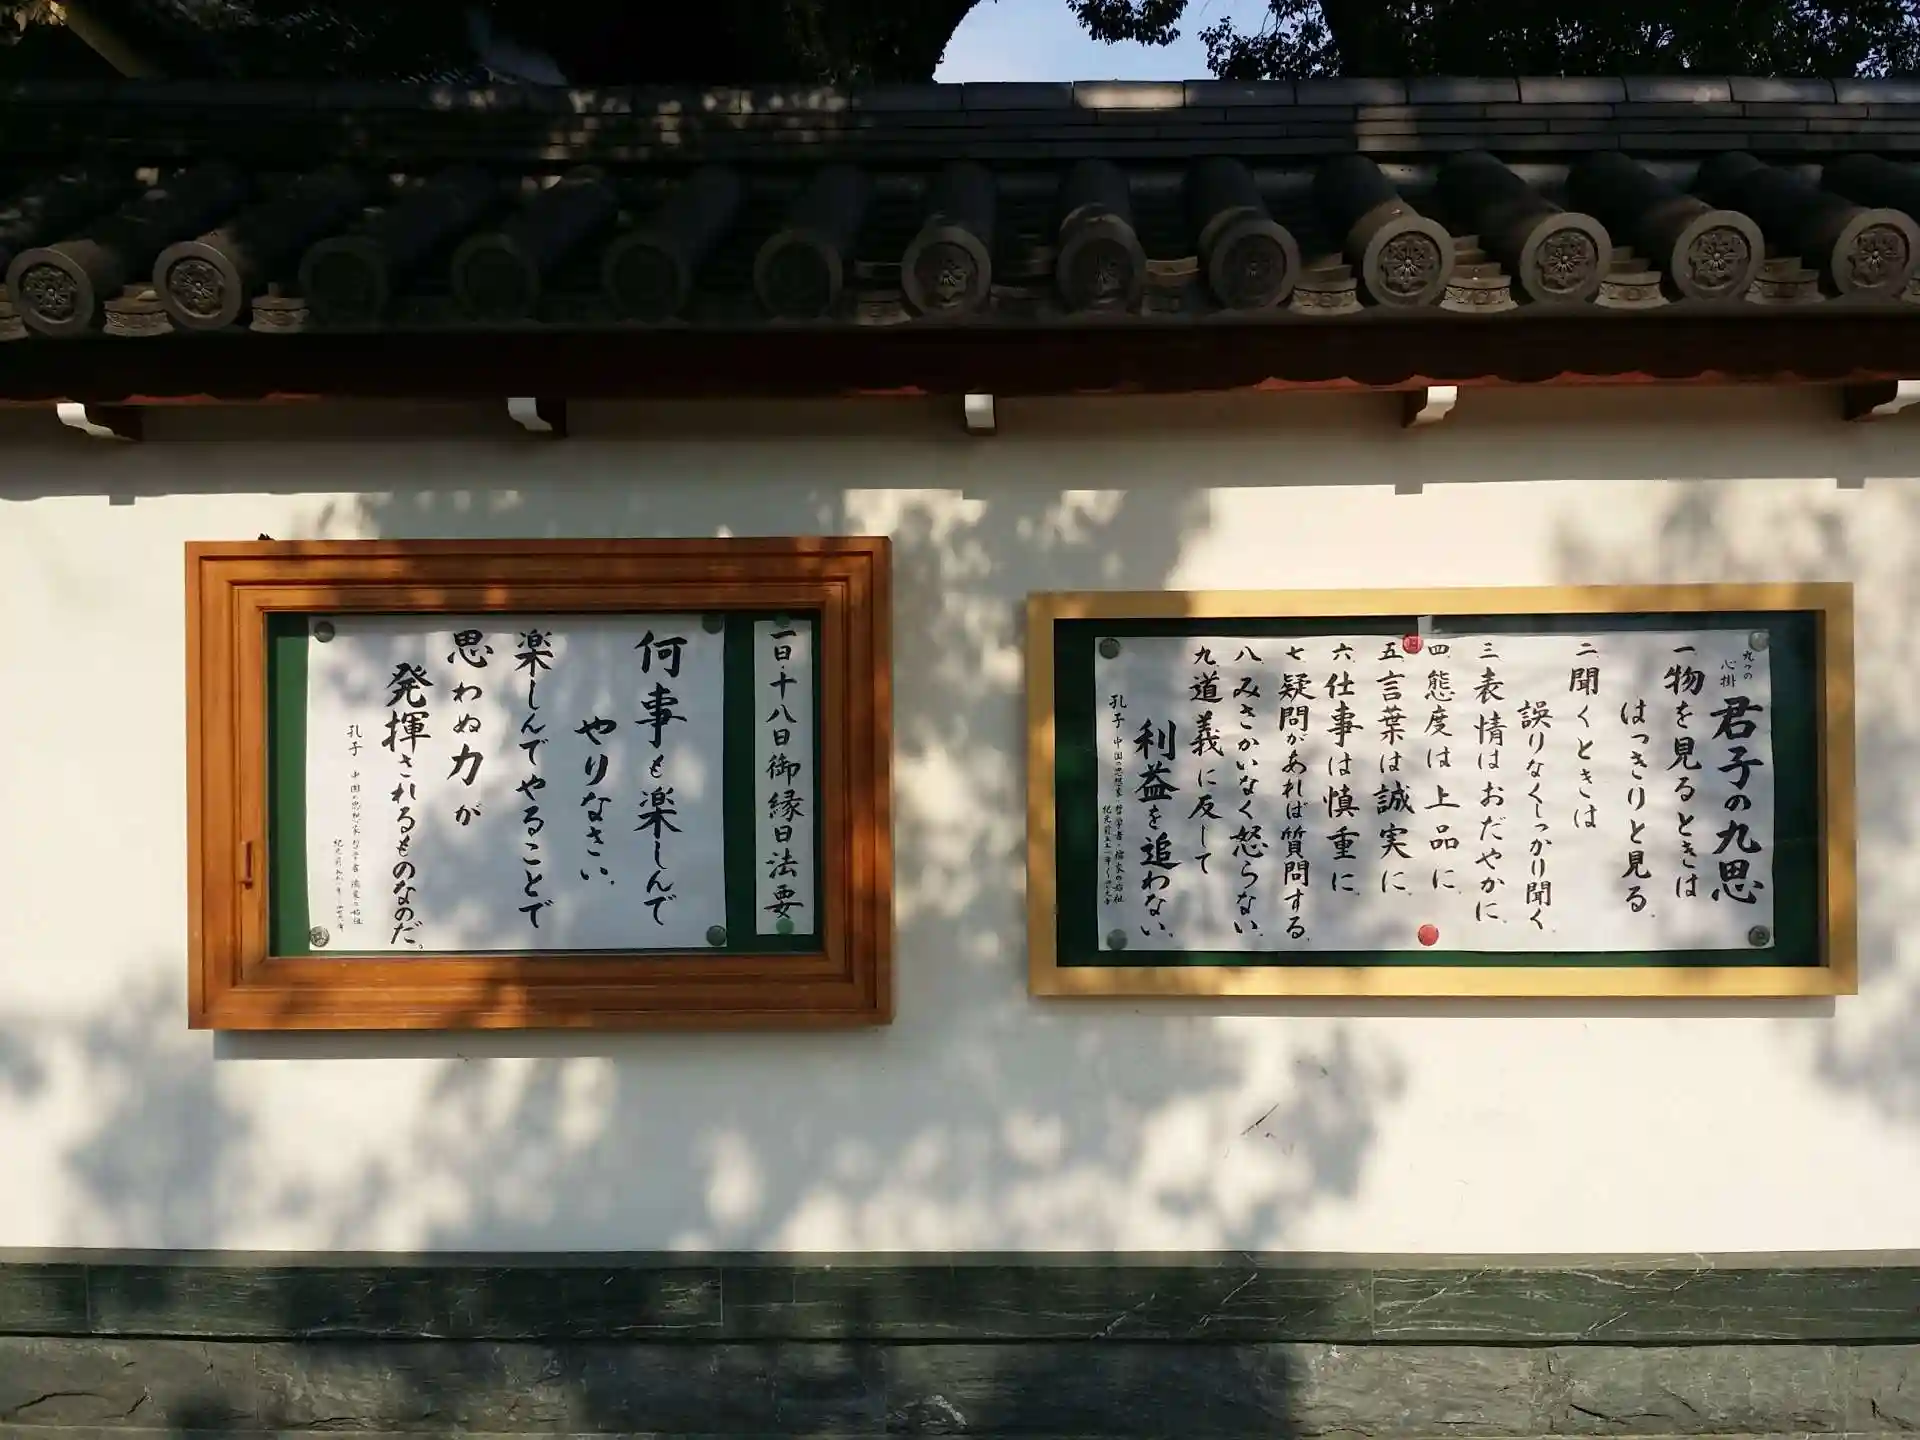 一日・十八日御縁日法要
何事も楽しんで
やりなさい。
楽しんでやることで
思わぬ力が
発揮されるものなのだ。
孔子 中国の思想家・哲学者 儒家の始祖
九つの心掛
君子の九思
一物を見るときは
はっきりと見る。
二聞くときは
誤りなくしっかり聞く。
三表情はおだやかに。
四態度は上品に。
五言葉は誠実に。
六仕事は慎重に。
七疑問があれば質問する。
八みさかいなく怒らない。
九道義に反して
利益を追わない。
孔子 中国の思想家・哲学者・儒家の始祖